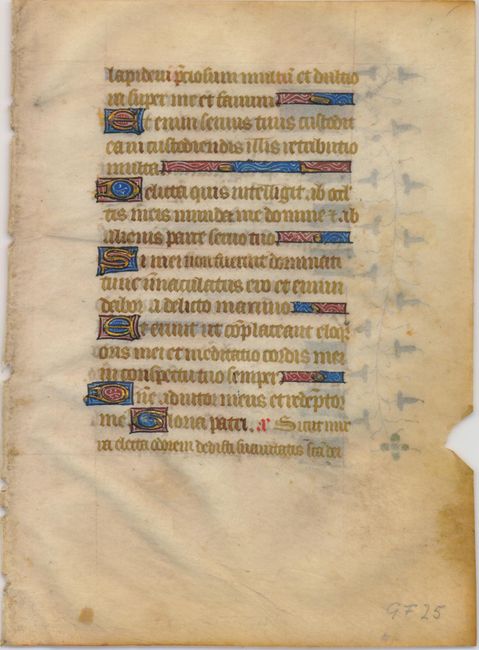 lapidem pciosum multū et dulcio
ra super mel et fauum
Et enim seruus tuus custodit
ea in custodiendis illis retributio
multa
Delicta quis intelligit ab occul
tis meis munda me domine et ab
alienis parce seruo tuo
Si mei non fuerint dominati
tunc īmaculatus ero et emun
dabor a delicto maximo
Et erunt ut cōplaceant eloqͥ
oris mei et meditatio cordis mei
in conspectu tuo semper
Dñe adiutor meus et redēptor
me Gloria patri. a Sicut mir
ra electa odorem dedisti suauitatis sc̄a dei
GF 25